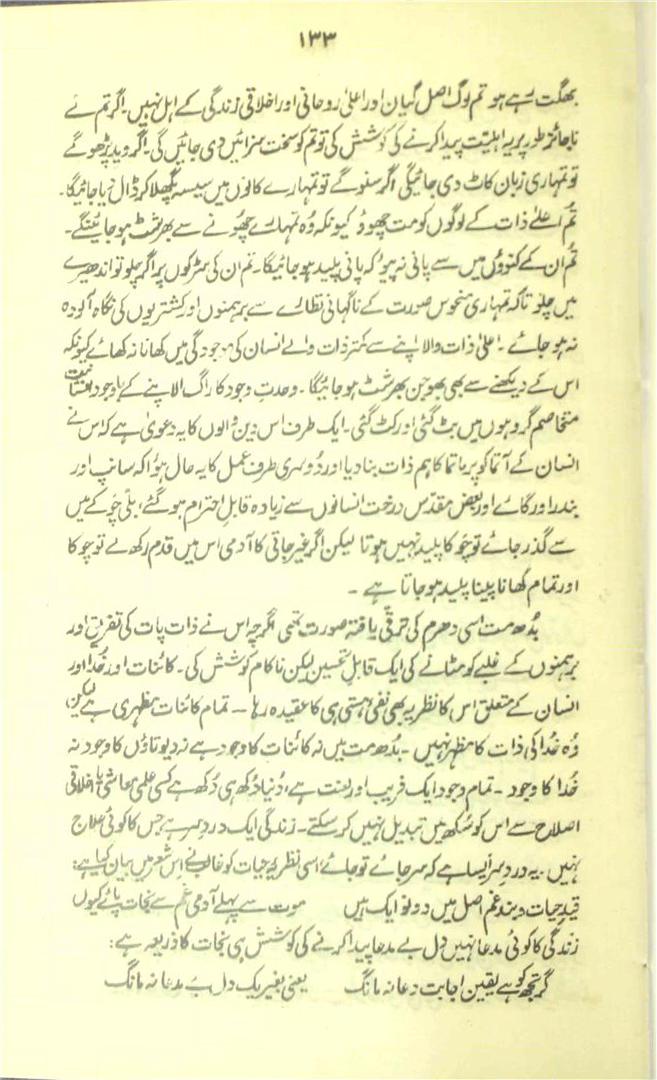 ۱۳۳
بھگت رہے ہو تم لوگ اصل گیان اور اعلیٰ روحانی اور اخلاقی زندگی کے اہل نہیں۔ اگر تم نے
ناجائز طور پر یہ اہلیت پیدا کرنے کی کوشش کی تو تم کو سخت سزائیں دی جائیں گی۔ اگر وید پڑھو گے
تو تمہاری زبان کاٹ دی جائیگی اگر سنو گے تو تمہارے کانوں میں سیسہ پگھلا کر ڈال دیا جائیگا۔
تم اعلےٰ ذات کے لوگوں کو مت چھوؤ کیونکہ وُہ تمہارے چھونے سے بھرشٹ ہو جائینگے۔
تم اُن کے کنوؤں میں سے پانی نہ پیو کہ پانی پلید ہو جائیگا۔ تم ان کی سڑکوں پر اگر چلو تو اندھیرے
میں چلو تاکہ تمہاری منحوس صورت کے ناگہانی نظارے سے برہمنوں اور کشتریوں کی نگاہ آلودہ
نہ ہو جائے۔ اعلیٰ ذات والا اپنے سے کمتر ذات والے انسان کی موجودگی میں کھانا نہ کھائے کیونکہ
اس کے دیکھنے سے بھی بھوجن بھرشٹ ہو جائیگا۔ وحدتِ وجود کا راگ الاپنے کے باوجود انسانیت
متخاصم گروہوں میں بٹ گئی اور کٹ گئی۔ ایک طرف اس دین والوں کا یہ دعویٰ ہے کہ اس نے
انسان کے آتما کو پرماتما کا ہم ذات بنا دیا اور دُوسری طرف عمل کا یہ حال ہوُا کہ سانپ اور
بندر اور گائے اور بعض مقدّس درخت انسانوں سے زیادہ قابلِ احترام ہو گئے، بلّی چَوکے میں
سے گذر جائے تو چوکا پلید نہیں ہوتا لیکن اگر غیر جاتی کا آدمی اس میں قدم رکھ لے تو چوکا
اور تمام کھانا پینا پلید ہو جاتا ہے۔
بُدھ مت اسی دھرم کی ترقی یافتہ صورت تھی اگرچہ اس نے ذات پات کی تفریق اور
برہمنوں کے غلبے کو مٹانے کی ایک قابلِ تحسین لیکن ناکام کوشش کی۔ کائنات اور خُدا اور
انسان کے متعلق اس کا نظریہ بھی نفی ہستی ہی کا عقیدہ رہا۔ تمام کائنات مظہری ہے لیکن
وُہ خُدا کی ذات کا مظہر نہیں۔ بُدھ مت میں نہ کائنات کا وجود ہے نہ دیوتاؤں کا وجود نہ
خُدا کا وجود۔ تمام وجود ایک فریب اور لعنت ہے، دُنیا دُکھ ہی دُکھ ہے کسی علمی معاشی یا اخلاقی
اصلاح سے اس کو سُکھ میں تبدیل نہیں کر سکتے۔ زندگی ایک دردِ سر ہے جس کا کوئی علاج
نہیں۔ یہ دردِ سر ایسا ہے کہ سر جائے تو جائے، اسی نظریۂ حیات کو غالب نے اس شعر میں بیان کیا ہے:
قیدِ حیات و بندِ غم اصل میں دونو ایک ہیں موت سے پہلے آدمی غم سے نجات پائے کیوں
زندگی کا کوئی مدعا نہیں دل بے مدعا پیدا کرنے کی کوشش ہی نجات کا ذریعہ ہے:
گر تجھ کو ہے یقین اجابت دعا نہ مانگ یعنی بغیر یک دل بے مدعا نہ مانگ